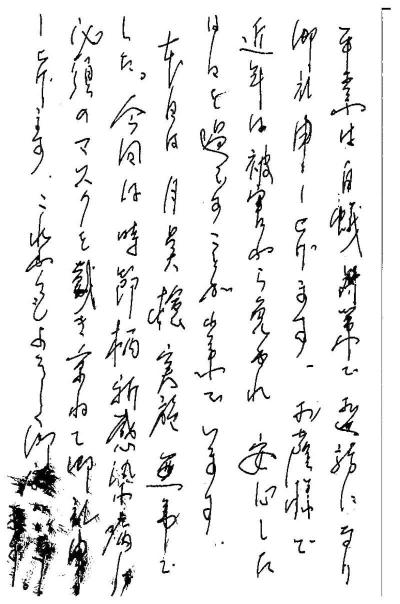 平素は白蟻対策でお世話になり
御礼申し上げます。お蔭様で
近年は被害から免がれ 安心した
日日を過ごすことが出来ています。
本日は 実施 無事で
した。今回は時節柄新感染病
必須のマスクを戴き重ねて御礼申
し上げます。これからもよろしく御